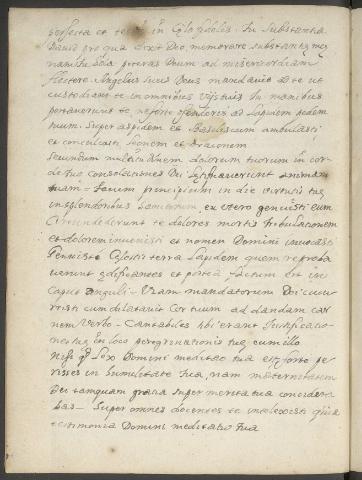 perfecta et testis in Cælo fidelis. Tu substantia
David pro qua dixit Deo, memorare substantiæ meæ
nam tu sola poteras Deum ad misericordiam
flectere Angelis suis Deus mandavit de te ut
custodiant te in omnibus vijs tuis In manibus
portaverunt te, ne forte offenderes ad lapidem pedem
tuum. Super aspidem et Basiliscum ambulasti
et conculcasti leonem et Draconem
secundum multitudinem dolorum tuorum in cor-
de tuo consolationes Dei lætificaverunt animam
tuam - tecum principium in die virtutis tuæ
in splendoribus Sanctorum, ex utero genuisti eum
Circumdederunt te dolores mortis tribulationem
et dolorem invenisti et nomen Domini invocasti
Genuisti Gloriæ terra lapidem quem reproba
verunt ædificantes et postea factum est in
caput anguli - Viam mandatorum Dei cucur
risti cum dilatavit Cor tuum ad dandam car
nem Verbo - Cantabiles tibi erant justificatio-
nes tuæ in loco peregrinationis tuæ cum illo
Nisi qd Lex Domini meditatio tua est forte pe-
risses in humilitate tua, nam maternitatem
Dei tamquam gratia super merita tua considera
bas - Super omnes docentes te intellexisti quia
testimonia Domini meditatio tua